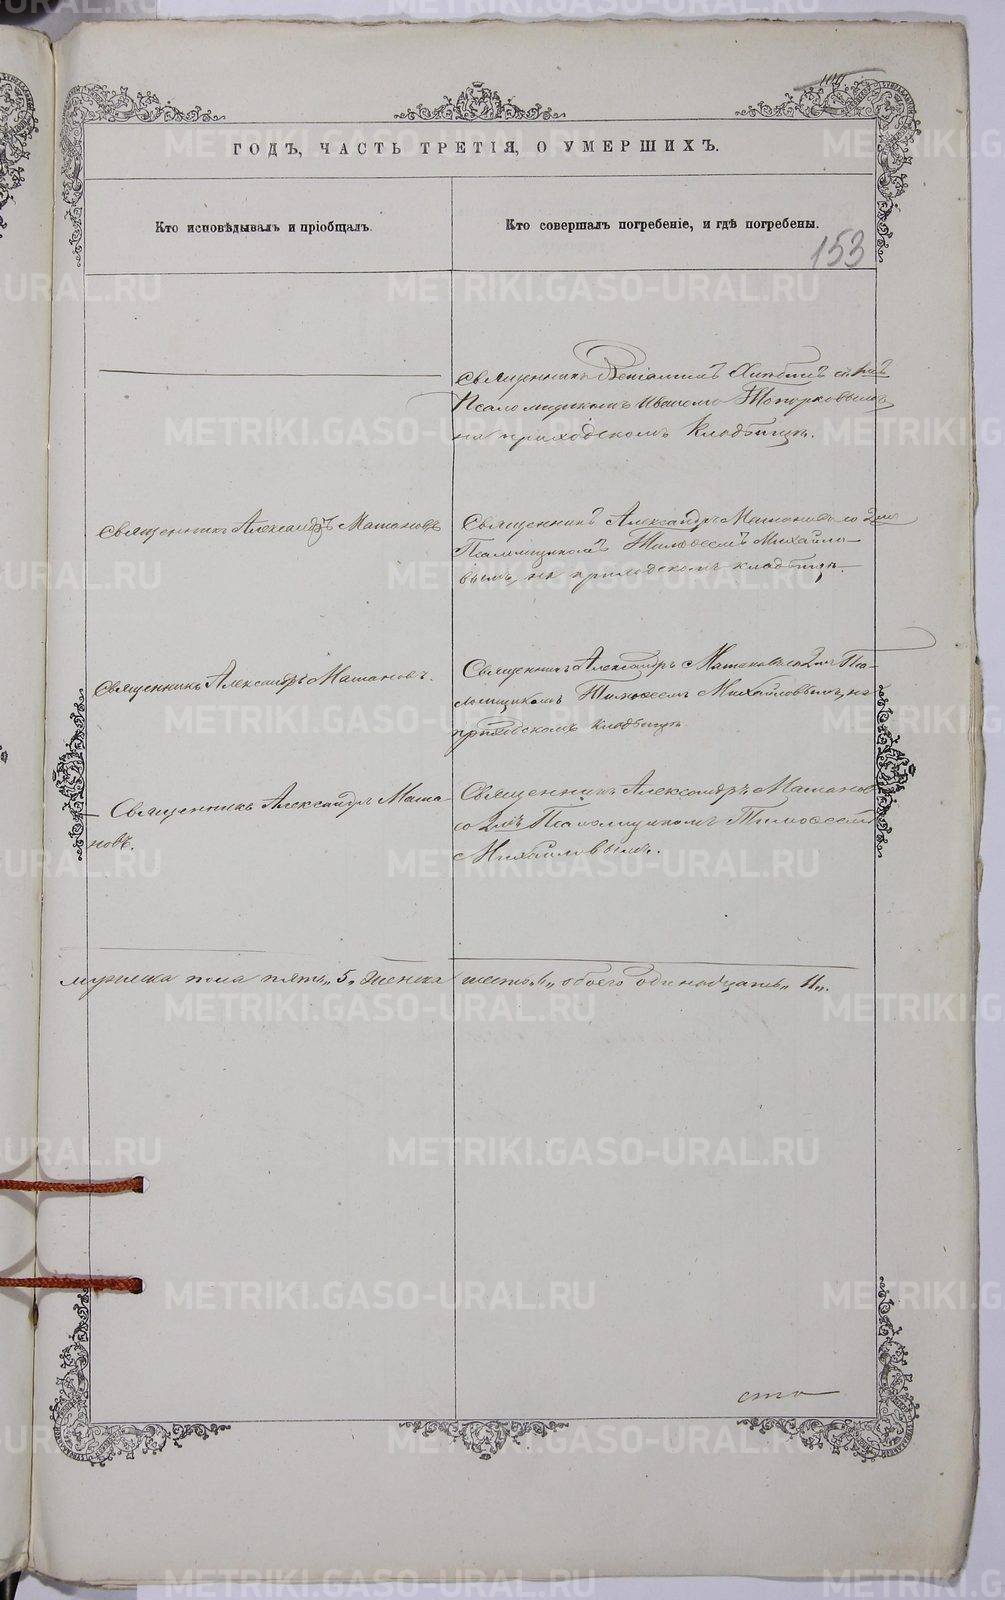 ГОДЪ, ЧАСТЬ ТРЕТІЯ, О УМЕРШИХЪ.
Кто исповѣдывалъ и пріобщалъ.
Кто совершалъ погребеніе, и гдѣ погребены.
153
Священникъ Веніаминъ съ 1мъ
Псаломщикомъ Иваномъ Топорковымъ
на приходскомъ кладбищѣ.
Священникъ Александръ Матановъ
Священникъ Александръ Матановъ со 2мъ
Псаломщикомъ Тимофеемъ Михайло-
вымъ, на приходскомъ кладбищѣ.
Священникъ Александръ Матановъ.
Священникъ Александръ Матановъ со 2мъ Пса-
ломщикомъ Тимофеемъ Михайловымъ, на
приходскомъ кладбищѣ
Священникъ Александръ Мата-
новъ.
Священникъ Александръ Матановъ
со 2мъ Псаломщикомъ Тимофеемъ
Михайловымъ.
мужеска пола пять „5„ женска шесть „6„ обоего одинадцать „11„.
сто
METRIKI.GASO-URAL.RU